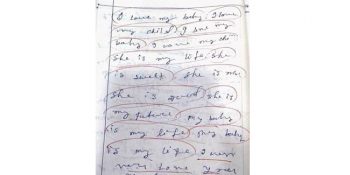 I love my baby. I love
my child. I love my
baby. I love my
She is my life. She
is sweet. She is
She is sweet. She is
my future. my baby
is my life. my baby
is my life. I
very